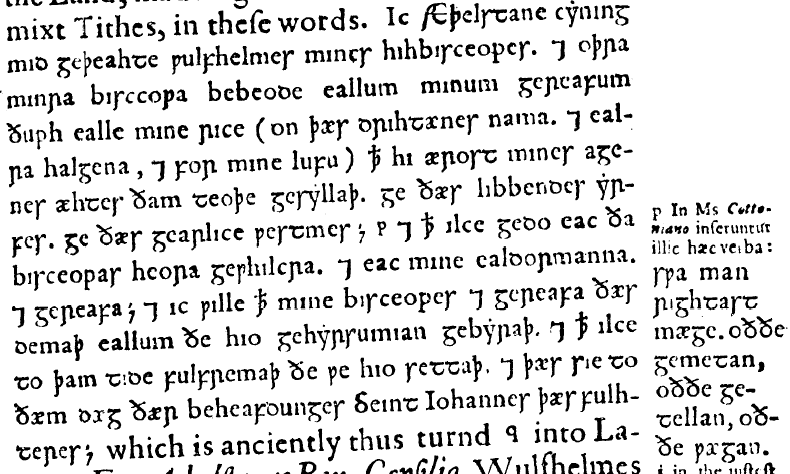 mixt Tithes, in theſe words. Ic Æþelſtane cẏning
mid geþeahte ƿulfhelmeſ mineſ hihbiſceopeſ. ⁊ oþra
minra biſccopa bebeode eallum minum gerefum
ðurh ealle mine rice (on þæſ drihtæneſ nama. ⁊ eal-
ra halgena, ⁊ for mine lufu) ꝥ hi æroſt mineſ age-
neſ æhteſ ðam teoþe geſẏllaþ. ge ðæſ libbendeſ ẏr-
feſ. ge ðæſ gearlice ƿeſtmeſ; p ⁊ ꝥ ilce gedo eac ða
biſceopaſ heora gehƿilcra. ⁊ eac mine ealdormanna.
⁊ gereafa; ⁊ ic ƿille ꝥ mine biſceopeſ ⁊ gereafa ðæſ
demaþ eallum ðe hio gehẏrſumian gebẏraþ. ⁊ ꝥ ilce
to þam tide fulfremaþ ðe ƿe hio ſettaþ. ⁊ þæſ ſie to
ðæm dæg ðær beheafdungeſ Seint Iohanneſ þæſ fulh-
teſeſ; which is anciently thus turnd q into La-
Wulfhelmes
p In Ms Cotto-
niano inſeruntur
illic hæc verba:
ſƿa man
rightaſt
mæge. oððe
gemetan,
oððe ge-
tellan, oð-
ðe ƿægan.